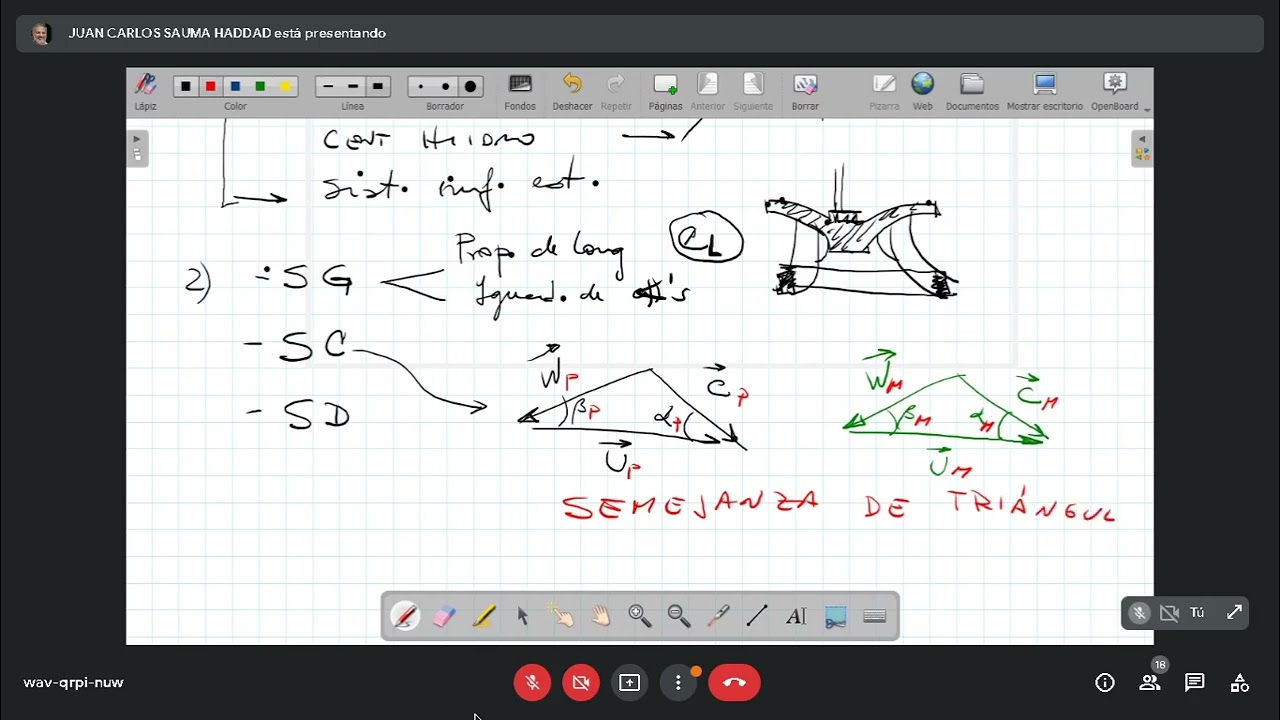 JUAN CARLOS SAUMA HADDAD está presentando
Lápiz Color Línea Borrador Fondos Deshacer Repetir Páginas Anterior Siguiente Borrar Pizarra Web Documentos Mostrar escritorio OpenBoard
CENT HIDRO
Sist. inf. est.
2) - SG
Prop. de Long
de
CL
- SC
- SD
W P
β P
α P
C P
U P
W M
β M
α M
C M
U M
SEMEJANZA DE TRIÁNGUL
Tú
wav-qrpi-nuw
18